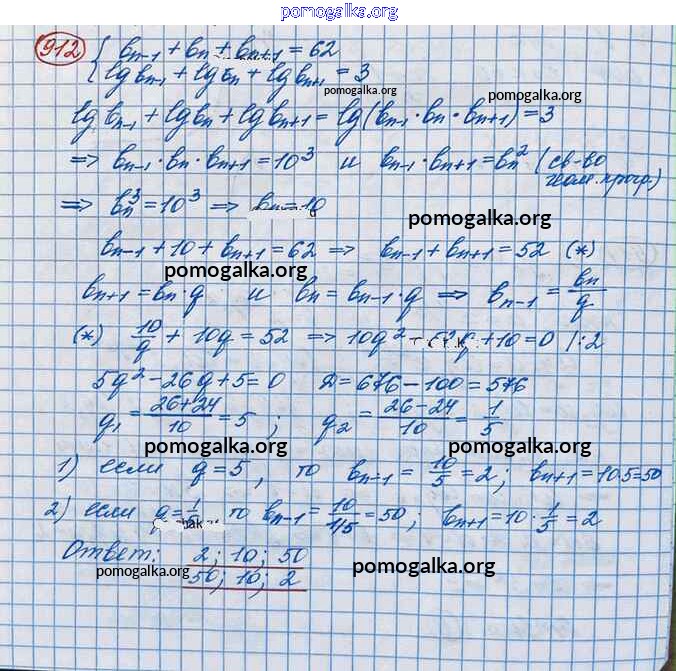 pomogalka.org
912 { bn-1 + bn + bn+1 = 62
lg bn-1 + lg bn + lg bn+1 = 3
pomogalka.org
pomogalka.org
lg bn-1 + lg bn + lg bn+1 = lg(bn-1 · bn · bn+1) = 3
=> bn-1 · bn · bn+1 = 10³ и bn-1 · bn+1 = bn² (св-во
геом. прогр.)
=> bn³ = 10³ => bn = 10
pomogalka.org
bn-1 + 10 + bn+1 = 62 => bn-1 + bn+1 = 52 (*)
pomogalka.org
bn+1 = bn · q и bn = bn-1 · q => bn-1 = bn/q
(*) 10/q + 10q = 52 => 10q² - 52q + 10 = 0 /:2
5q² - 26q + 5 = 0 D = 676 - 100 = 576
q1 = (26+24)/10 = 5 ; q2 = (26-24)/10 = 1/5
pomogalka.org pomogalka.org
1) если q = 5, то bn-1 = 10/5 = 2; bn+1 = 10·5 = 50
2) если q = 1/5 то bn-1 = 10/1/5 = 50; bn+1 = 10 · 1/5 = 2
Ответ: 2; 10; 50
pomogalka.org pomogalka.org
50; 10; 2
pomogalka.org